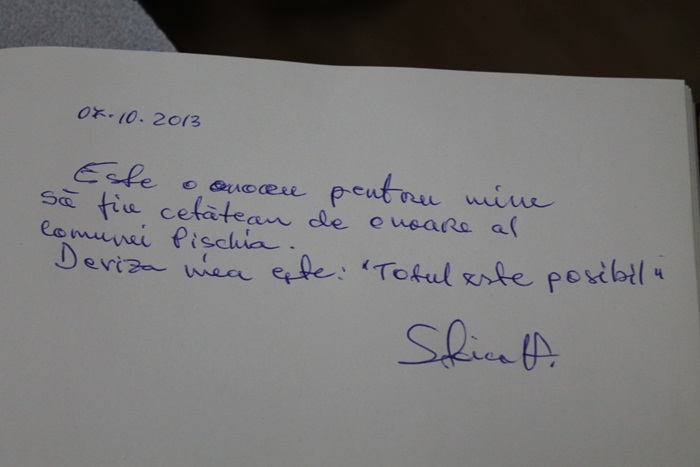 07.10.2013
Este o onoare pentru mine
să fiu cetătean de onoare al
comunei Pischia.
Deviza mea este: "Totul este posibil"